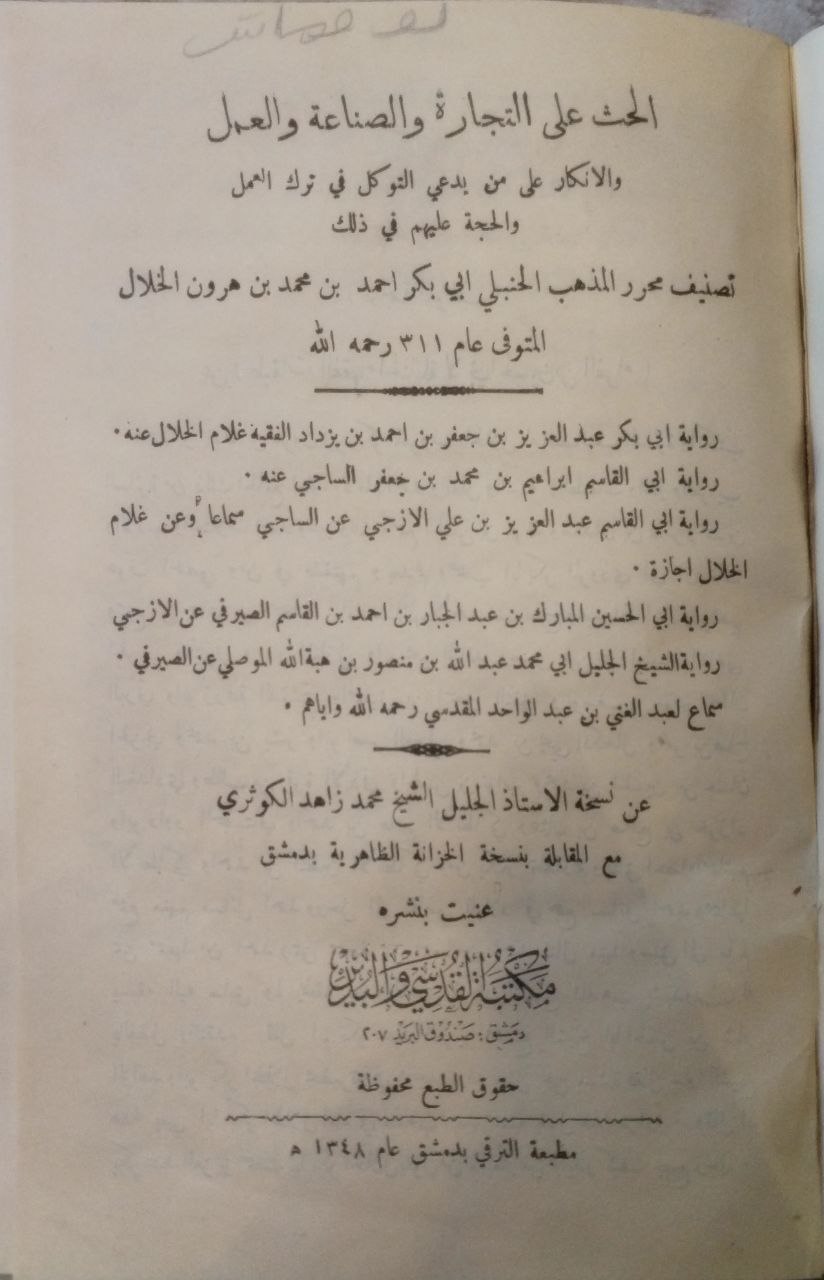 الحث على التجارة والصناعة والعمل
والانكار على من يدعي التوكل في ترك العمل
والحجة عليهم في ذلك
تصنيف محرر المذهب الحنبلي ابي بكر احمد بن محمد بن هرون الخلال
المتوفى عام ٣١١ رحمه الله
رواية ابي بكر عبد العزيز بن جعفر بن احمد بن يزداد الفقيه غلام الخلال عنه .
رواية ابي القاسم ابراهيم بن محمد بن جعفر الساجي عنه .
رواية ابي القاسم عبد العزيز بن علي الازجي عن الساجي سماعا وعن غلام
الخلال اجازة .
رواية ابي الحسين المبارك بن عبد الجبار بن احمد بن القاسم الصيرفي عن الازجي
رواية الشيخ الجليل ابي محمد عبد الله بن منصور بن هبة الله الموصلي عن الصيرفي .
سماع لعبد الغني بن عبد الواحد المقدسي رحمه الله واياهم .
عن نسخة الاستاذ الجليل الشيخ محمد زاهد الكوثري
مع المقابلة بنسخة الخزانة الظاهرية بدمشق
عنيت بنشره
مكتبة القدسي والبدير
دمشق : صندوق البريد ٢٠٧
حقوق الطبع محفوظة
مطبعة الترقي بدمشق عام ١٣٤٨ ه